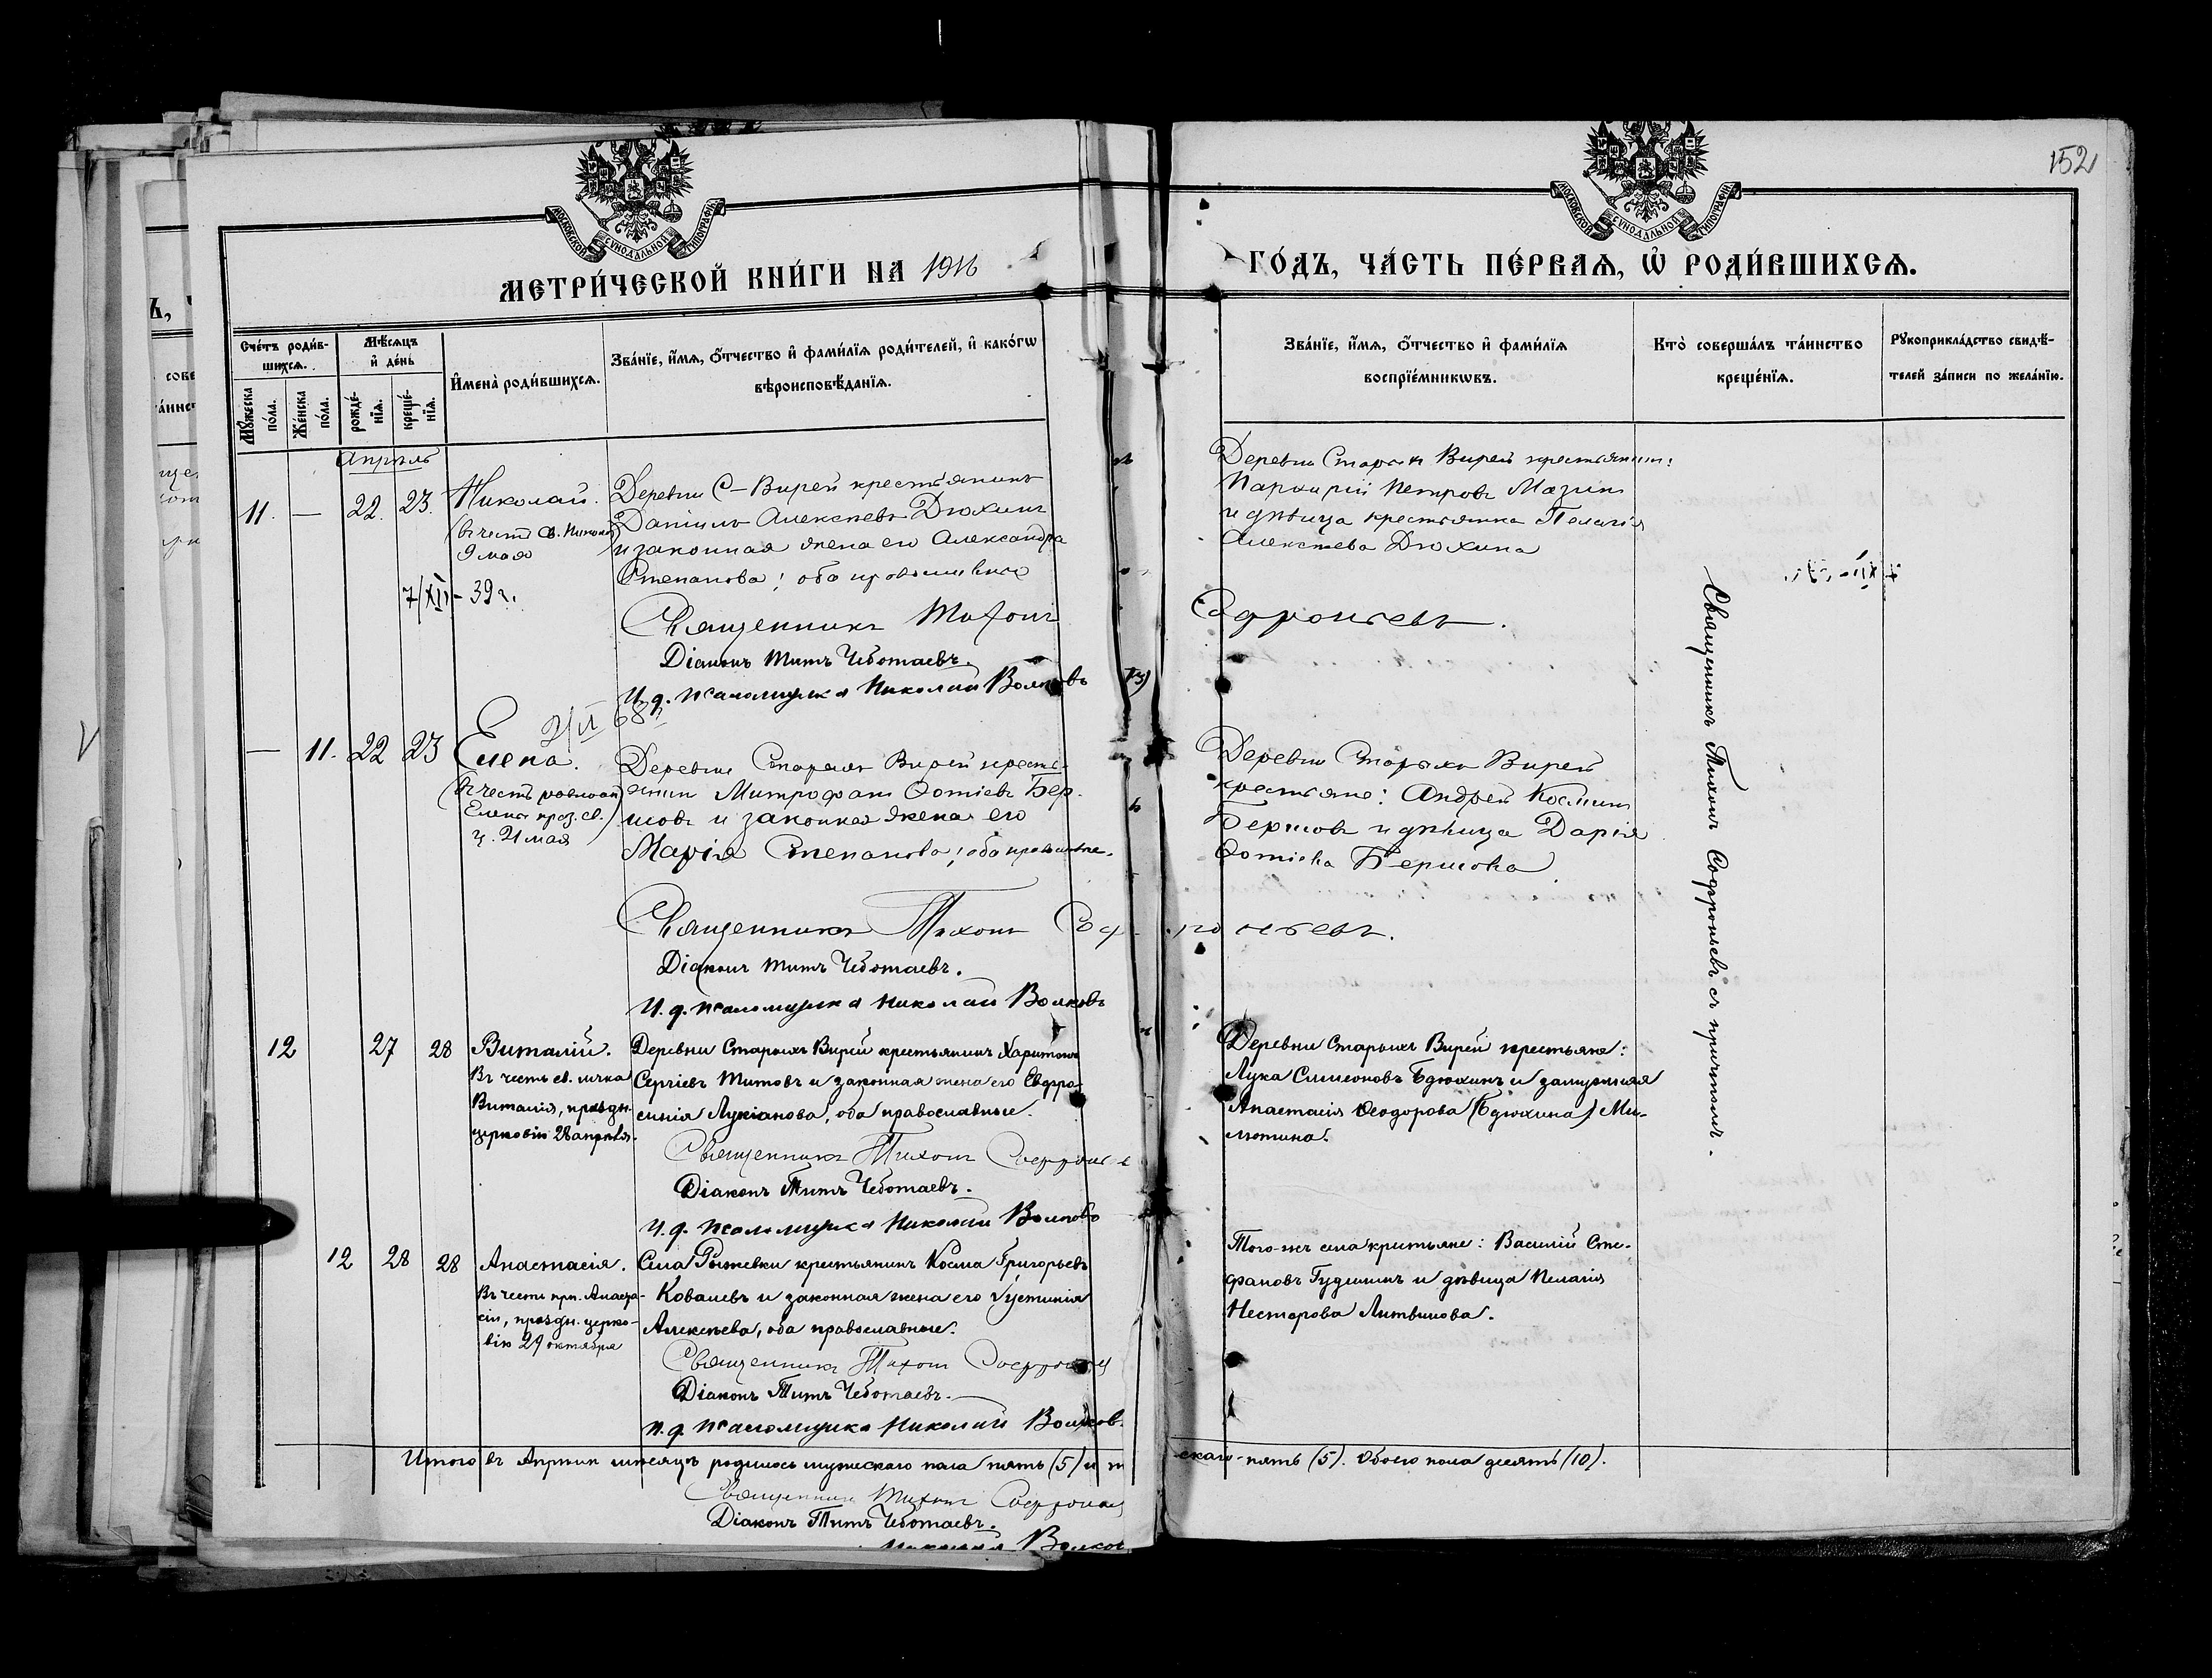 152
МОСКОВСКОЙ СѴНОДАЛЬНОЙ ТИПОГРАФІИ
МОСКОВСКОЙ СѴНОДАЛЬНОЙ ТИПОГРАФІИ
МЕТРИ́ЧЕСКОЙ КНИ́ГИ НА 1916
ГО́ДЪ, ЧА́СТЬ ПЕ́РВАѦ, Ѡ РОДИ́ВШИХСѦ.
Сче́тъ роди́в-
шихсѧ.
Мꙋ́жеска
по́ла.
Же́нска
по́ла.
Мѣ́сѧцъ
и҆ де́нь
рожде́-
нїѧ.
креще́-
нїѧ.
И҆мена̀ роди́вшихсѧ.
Зва́нїе, и҆́мѧ, ѻ҆́тчество и҆ фами́лїѧ роди́телей, и҆ како́гѡ
вѣроисповѣ́данїѧ.
Зва́нїе, и҆́мѧ, ѻ҆́тчество и҆ фами́лїѧ
воспрїе́мникѡвъ.
Кто̀ соверша́лъ та́инство
креще́нїѧ.
Рꙋкоприкла́дство свидѣ́-
телей за́писи по жела́нїю.
Апрѣль
11. — 22. 23. Николай.
(въ честь св. Николая)
9 мая
7/XII - 39 г.
Деревни С-Вирей крестьянинъ
Даніилъ Алексѣевъ Дюхинъ
и законная жена его Александра
Степанова; оба православные
Священникъ Тихонъ Софроньевъ.
Діаконъ Титъ Чеботаевъ.
И. д. псаломщика Николай Волковъ
Деревни Старыхъ Вирей крестьянинъ:
Парфирій Петровъ Мазинъ
и дѣвица крестьянка Пелагія
Алексѣева Дюхина
— 11. 22 23 Елена.
(въ честь равноап.
Елены праз. св.
ц. 21 мая)
Деревни Старыхъ Вирей кресть-
янинъ Митрофанъ Ѳотіевъ Бер-
шовъ и законная жена его
Марія Степанова; оба православные.
Священникъ Тихонъ Софроньевъ.
Діаконъ Титъ Чеботаевъ.
И. д. псаломщика Николай Волковъ
Деревни Старыхъ Вирей
крестьяне: Андрей Косминъ
Бершовъ и дѣвица Дарія
Ѳотіева Бершова.
12 27 28 Виталій.
Въ честь св. мчка
Виталія, праздн.
церковію 28 апрѣля.
Деревни Старыхъ Вирей крестьянинъ Харитонъ
Сергіевъ Титовъ и законная жена его Евфро-
синія Лукіанова, оба православные.
Священникъ Тихонъ Софроньев
Діаконъ Титъ Чеботаевъ.
И. д. псаломщика Николай Волковъ
Деревни Старыхъ Вирей крестьяне:
Лука Симеоновъ Бдюхинъ и замужняя
Анастасія Ѳеодорова (Бдюхина) Ми-
лютина.
12 28 28 Анастасія.
Въ честь прп. Анаста-
сіи, праздн. церко-
вію 29 октября
Села Рытевки крестьянинъ Косма Григорьевъ
Ковалевъ и законная жена его Іустинія
Алексѣева, оба православные.
Священникъ Тихонъ Софронь
Діаконъ Титъ Чеботаевъ.
И. д. псаломщика Николай Волков
Того-же села крестьяне: Василій Сте-
фановъ Гудошинъ и дѣвица Пелагія
Нестерова Литвинова.
Священникъ Тихонъ Софроньевъ съ причтомъ.
Итого въ Апрѣлѣ мѣсяцѣ родилось мужескаго пола пять (5) и ж
ескаго-пять (5). Обоего пола десять (10).
Священникъ Тихонъ Софронь
Діаконъ Титъ Чеботаевъ.
Николай Волков